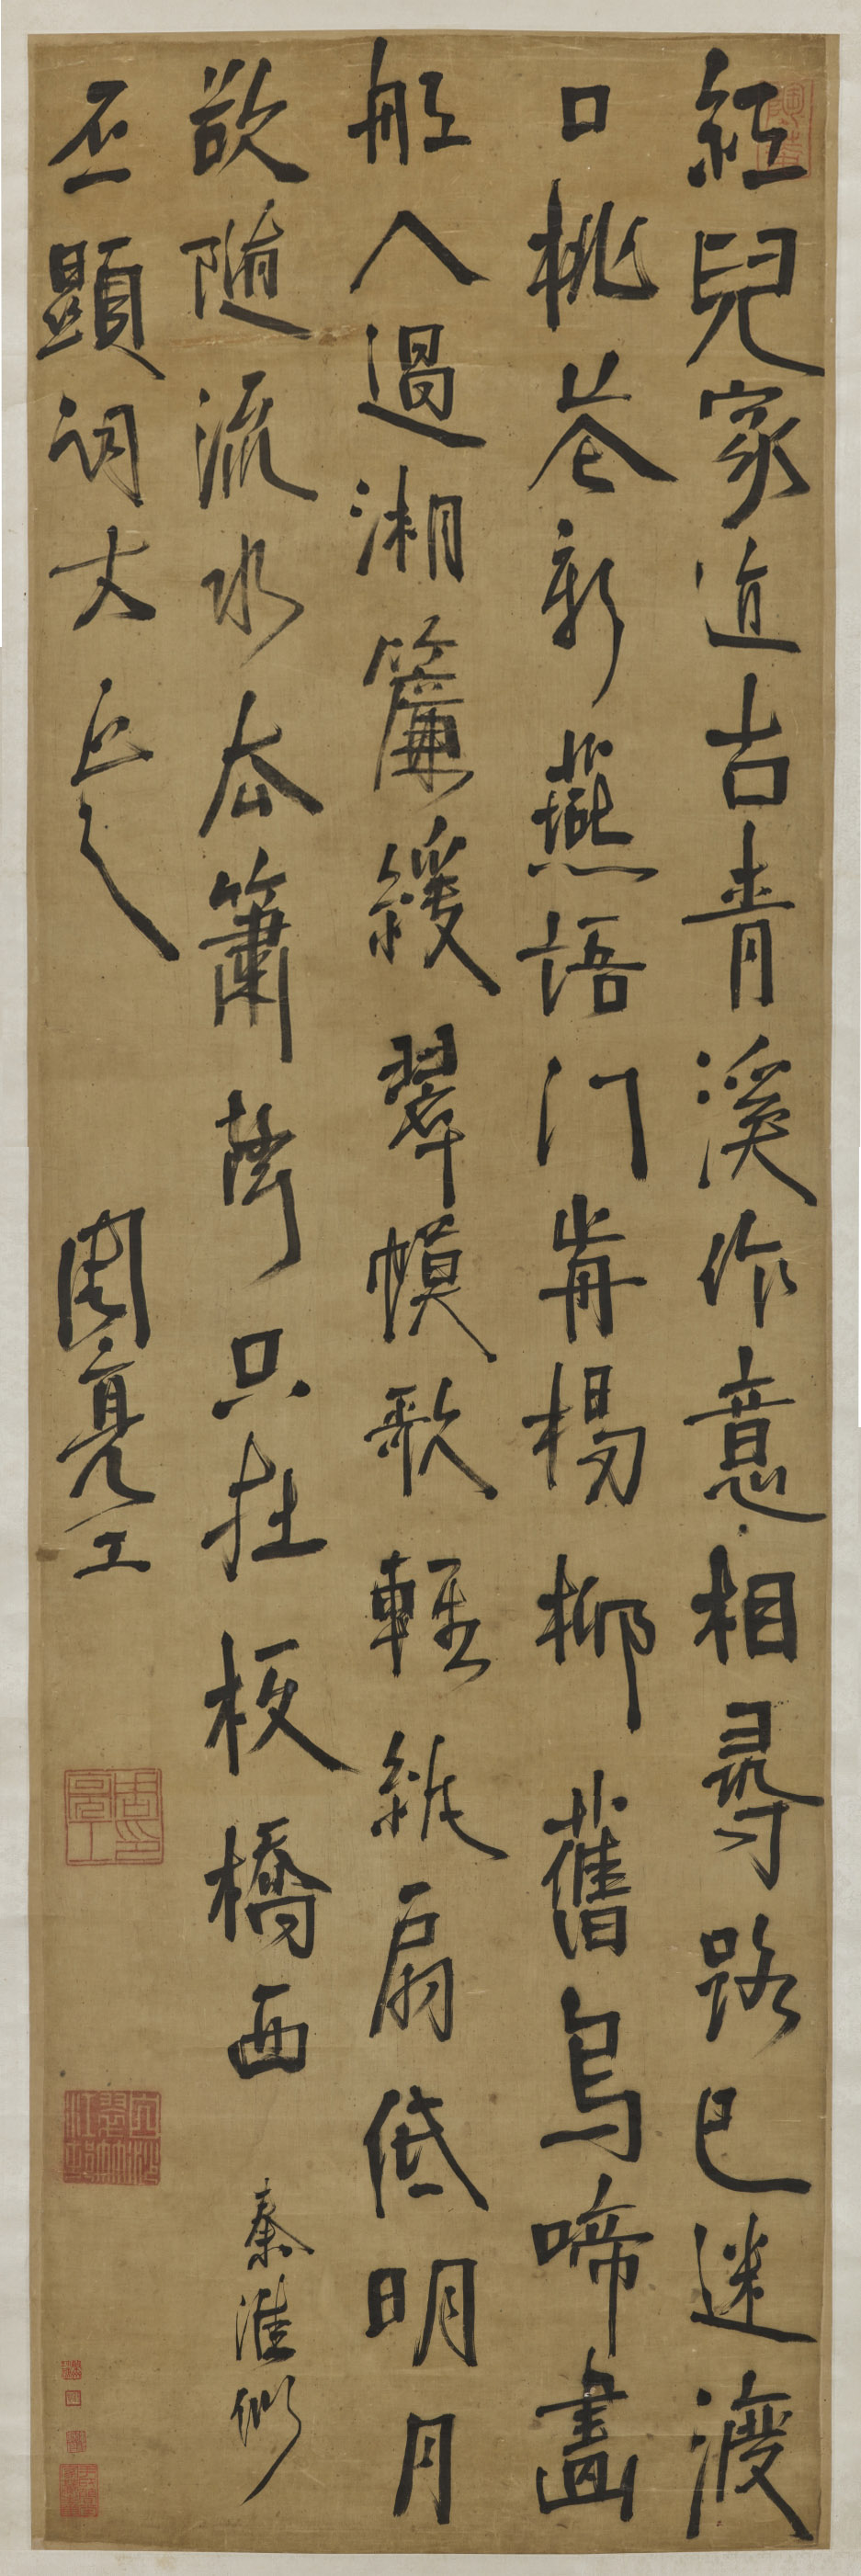 紅兒家近古青溪作意相尋路已迷渡
口桃花新燕語門前楊柳舊烏啼畫
舡人過湘簾緩翠幙歌輕紈扇低明月
欲隨流水去簫聲只在板橋西 秦淮似
丕顯詞丈正之 周亮工
周亮工印